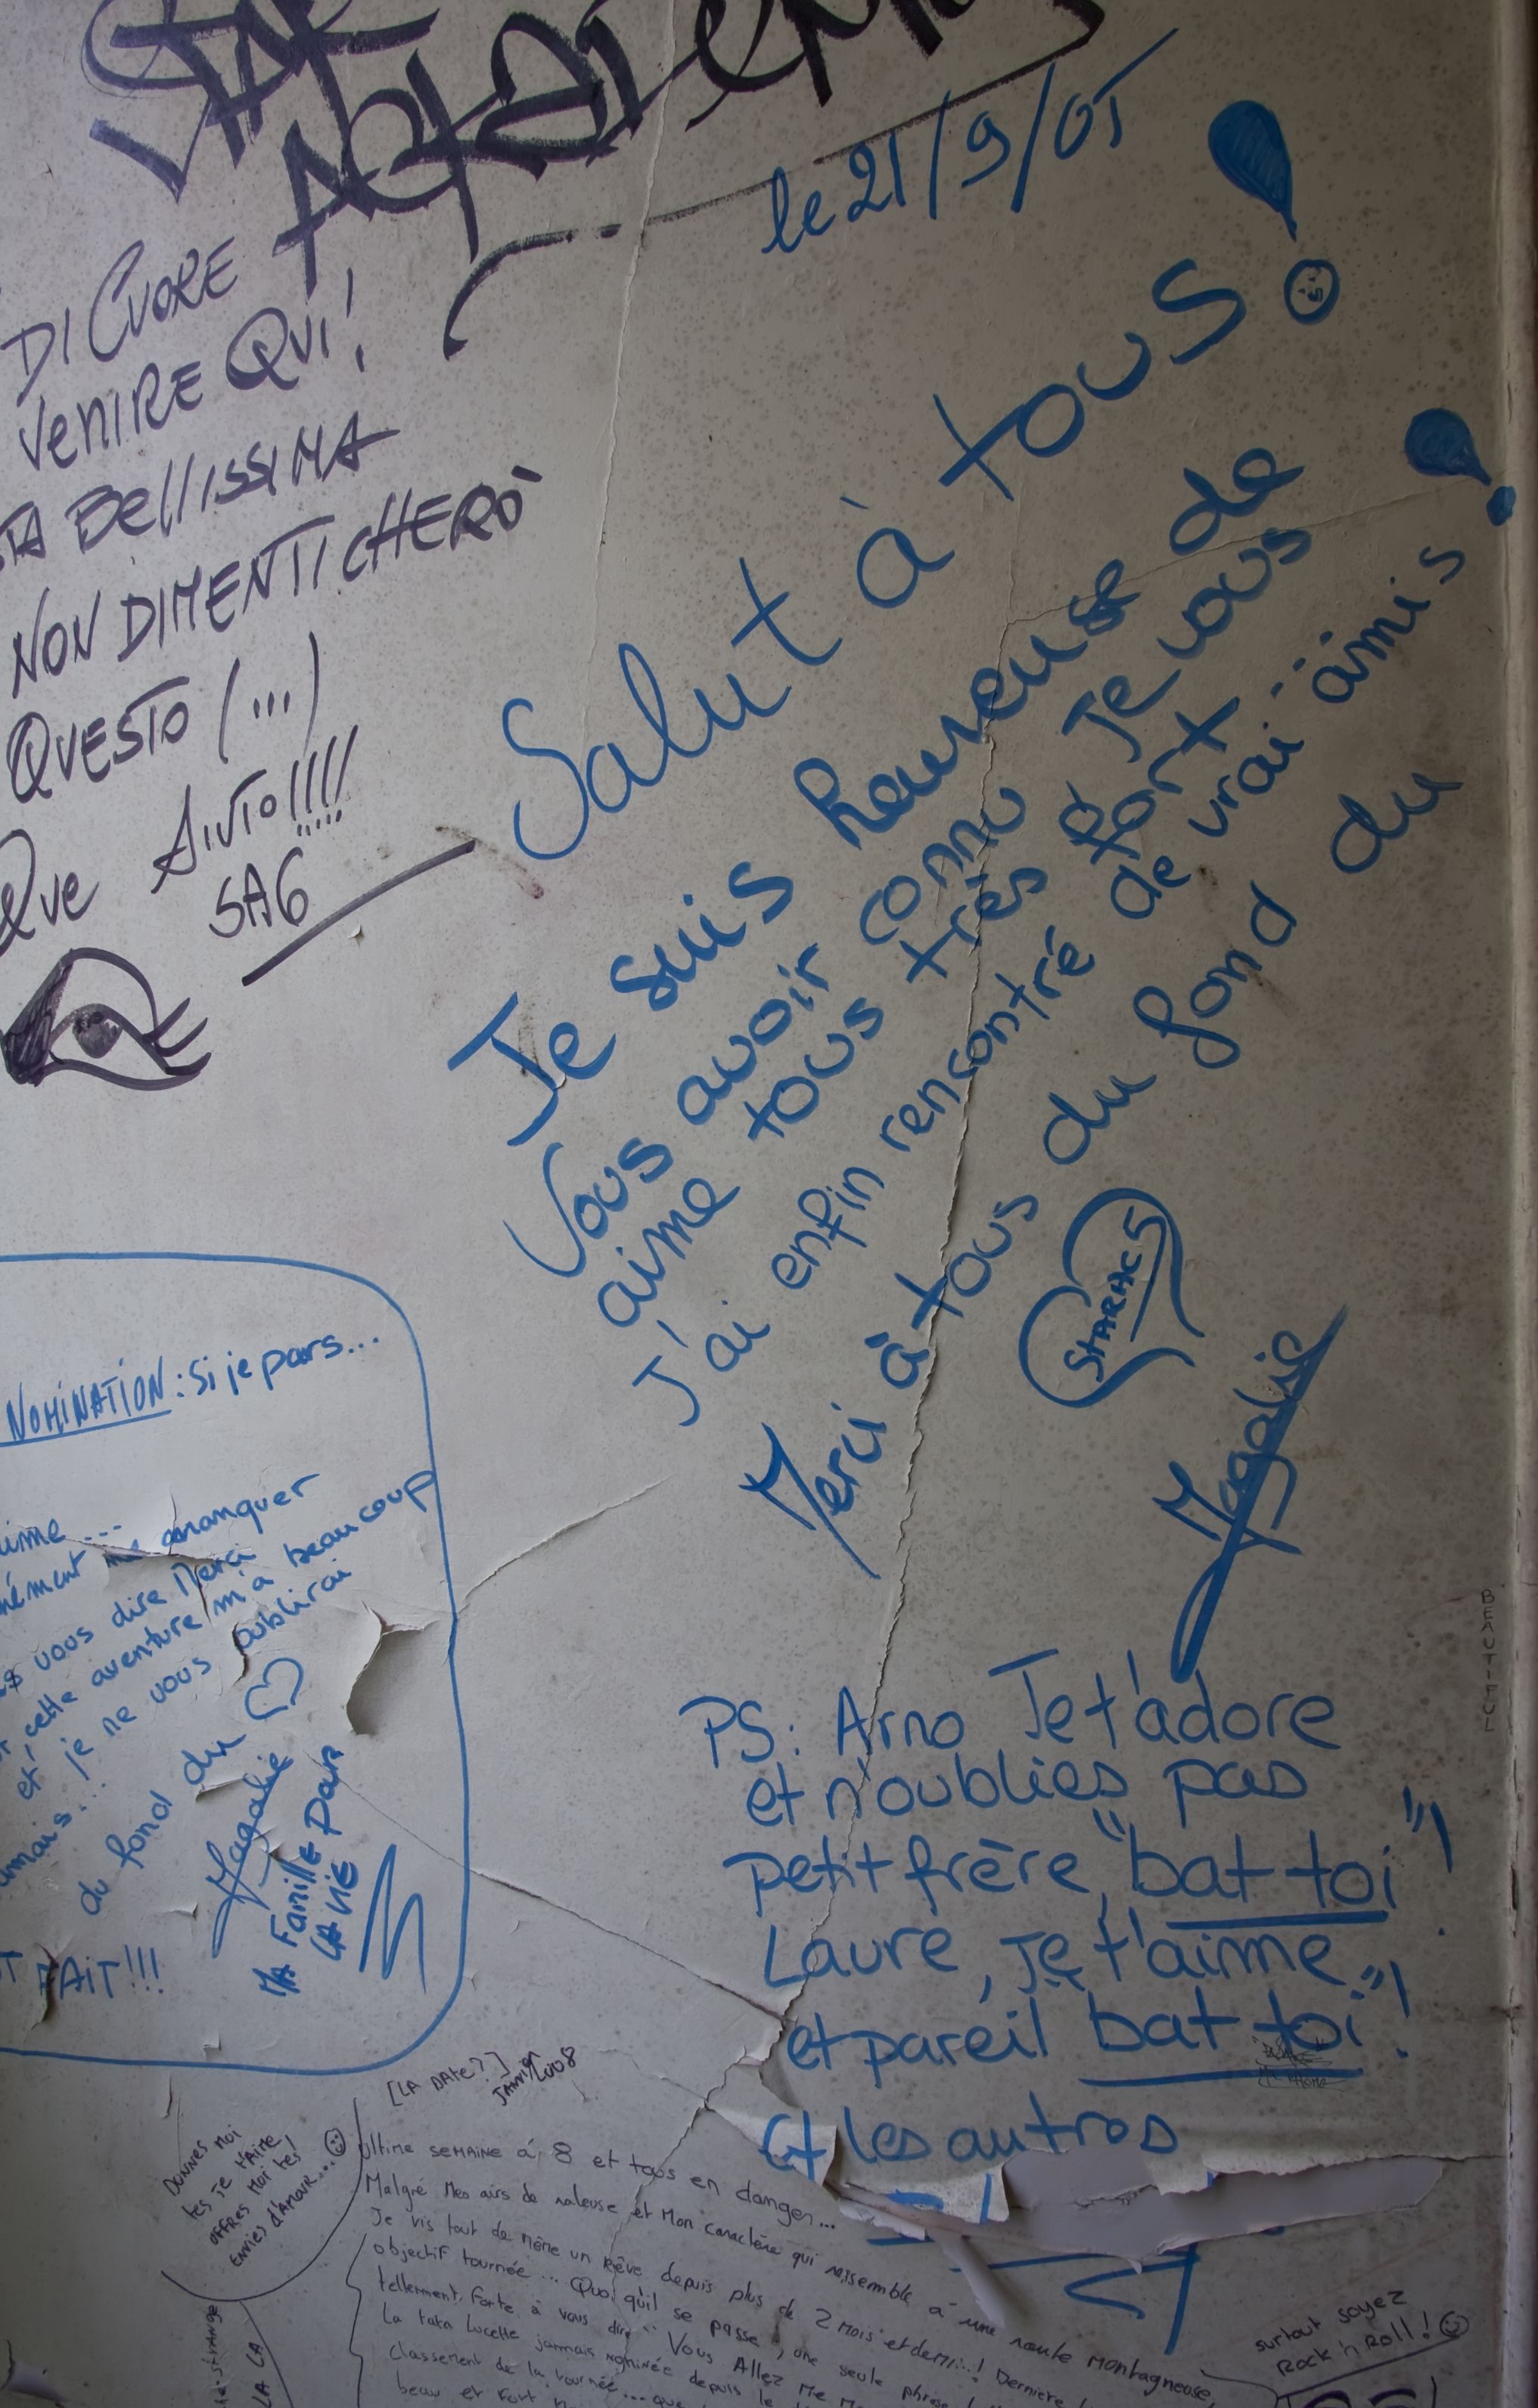 STAR
ACADEMY
DI CUORE
VENIRE QUI!
BELLISSIMA
NON DIMENTICHERÒ
QUESTO (...)
QUE AIUTO!!!!
SAG
le 21/9/05
Salut à tous !
Je suis heureuse de
vous avoir connu & Je vous
aime tous très fort
J'ai enfin rencontré de vrai amis !
Merci à tous du fond du
STARAC 5
Magalie
PS: Arno Je t'adore
et n'oublies pas
petit frère, "bat toi"!
Laure, je t'aime
et pareil "bat toi"!
Et les autres
NOMINATION : Si je pars...
manquer
vous dire Merci
cette aventure m'a beaucoup
et, je ne vous oublirai
du fond du ♡
Magalie
MA FamillE Pour
LA VIE
FAIT!!!
BEAUTIFUL
[LA DATE?]
JANVIER 2008
DONNES MOI
tes je t'AIME
OFFRES MOI tes
ENVIES d'AMOUR...
Ultime SEMAINE à 8 et tous en danger...
Malgré Mes airs de raleuse et Mon caractère qui ressemble à une route montagneuse,
Je vis tout de même un Rêve depuis plus de 2 Mois et demi...! Dernière
objectif tournée... Quoi qu'il se passe, une seule phrase
tellement forte à vous dire.. Vous Allez Me
La taka Lucette jamais nominée depuis le
classement de la tournée... que
beau et Fort
LA LA
surtout soyez
Rock 'n Roll!